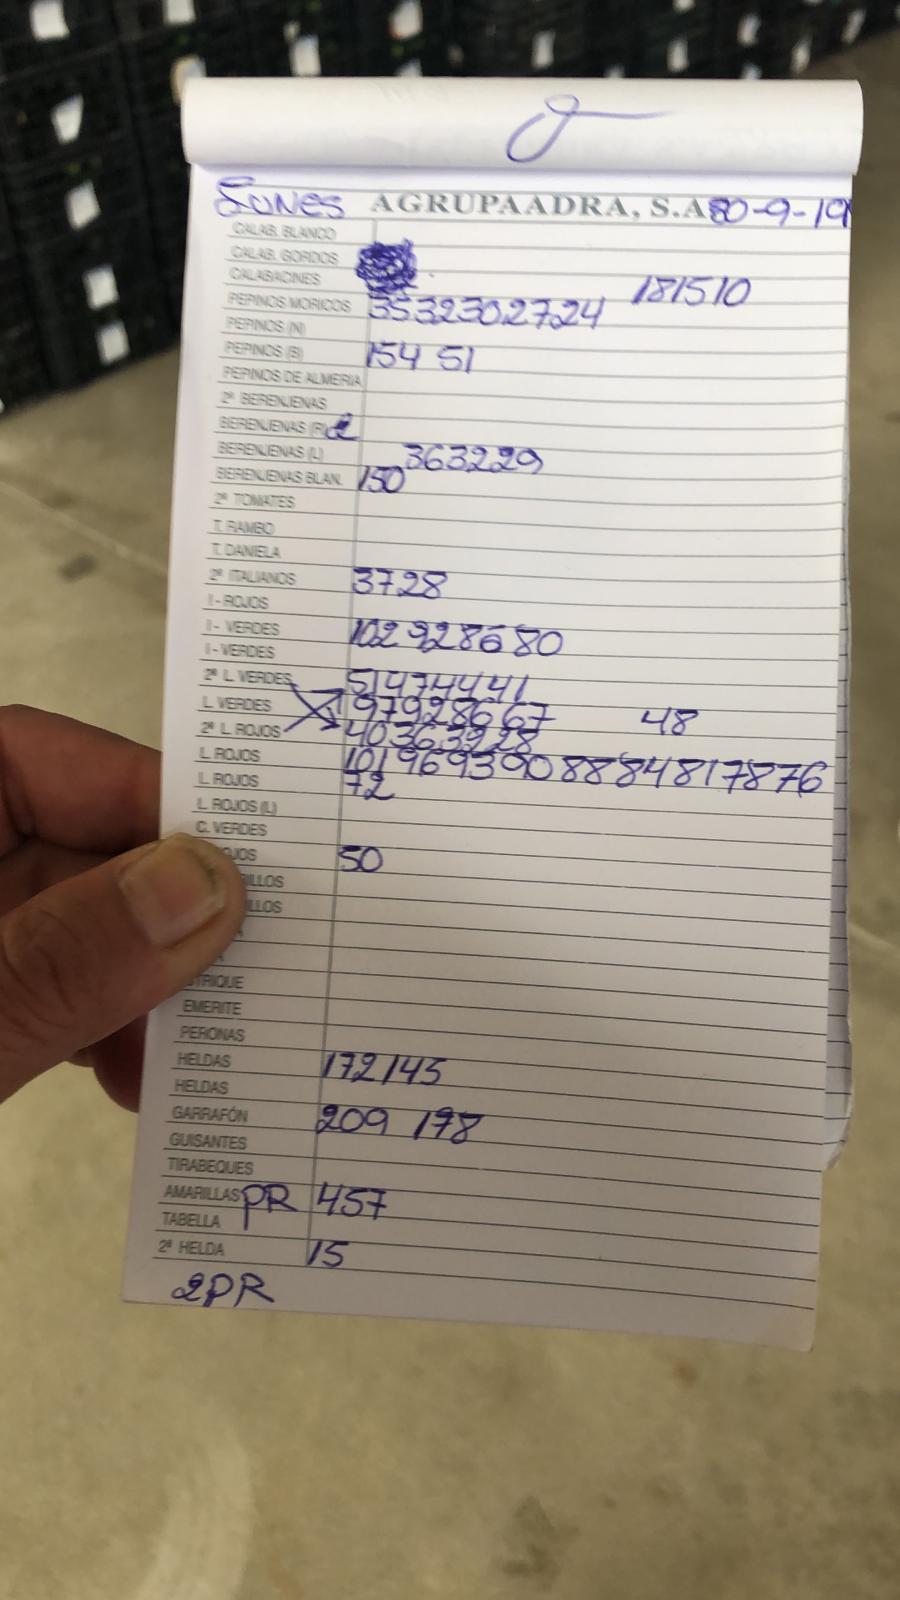 LUNES AGRUPAADRA, S.A 30-9-19
CALAB. BLANCO
CALAB. GORDOS
CALABACINES 181510
PEPINOS MORICOS 3532302724
PEPINOS (N)
PEPINOS (B) 154 51
PEPINOS DE ALMERIA
2ª BERENJENAS
BERENJENAS (R) 2
BERENJENAS (L) 363229
BERENJENAS BLAN. 150
2ª TOMATES
T. RAMBO
T. DANIELA
2ª ITALIANOS 3728
I - ROJOS
I - VERDES 102 928680
I - VERDES
2ª L. VERDES 51474441
L. VERDES 97928667 48
2ª L. ROJOS 40363228
L. ROJOS 101969390888484817876
L. ROJOS 72
L. ROJOS (L)
C. VERDES
OJOS 50
RILLOS
ILLOS
A
TRIQUE
EMERITE
PERONAS
HELDAS 172145
HELDAS
GARRAFÓN 209 178
GUISANTES
TIRABEQUES
AMARILLAS PR 457
TABELLA
2ª HELDA 15
2PR